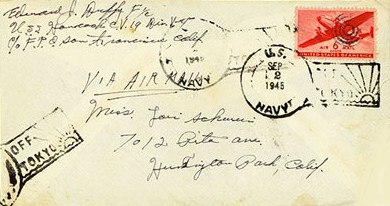 Edward J. Duffy F 1/c
U.S.S. Hancock C.V. 19 Div. V-4
c/o F.P.O. San Francisco Calif.
1945
NAVY
U.S.
SEP
2
1945
NAVY
AIR 6¢ MAIL
UNITED STATES OF AMERICA
OFF
TOKYO
VIA AIR MAIL
Miss. Lori
7012 Rita ave.
Huntington Park, Calif.
OFF
TOKYO